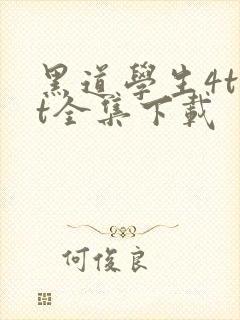 黑道學生4t
t全集下載
何俊良